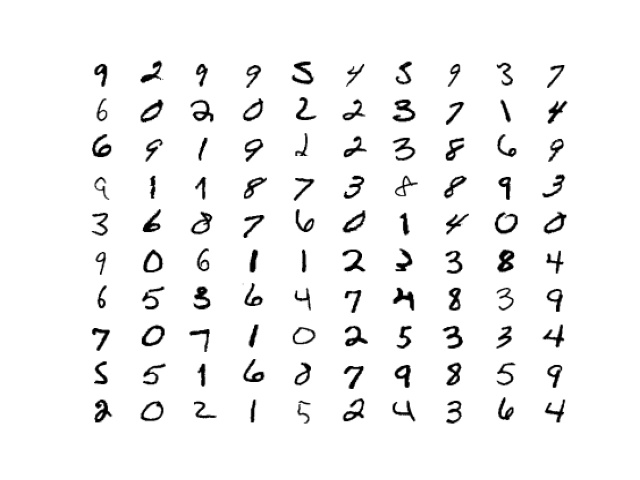 9 2 9 9 5 4 5 9 3 7
6 0 2 0 2 2 3 7 1 4
6 9 1 9 2 2 3 8 6 9
9 1 1 8 7 3 8 8 9 3
3 6 8 7 6 0 1 4 0 0
9 0 6 1 1 2 3 8 4
6 5 3 6 4 7 4 8 3 9
7 0 7 1 0 2 5 3 3 4
5 5 1 6 8 7 9 8 5 9
2 0 2 1 5 2 4 3 6 4